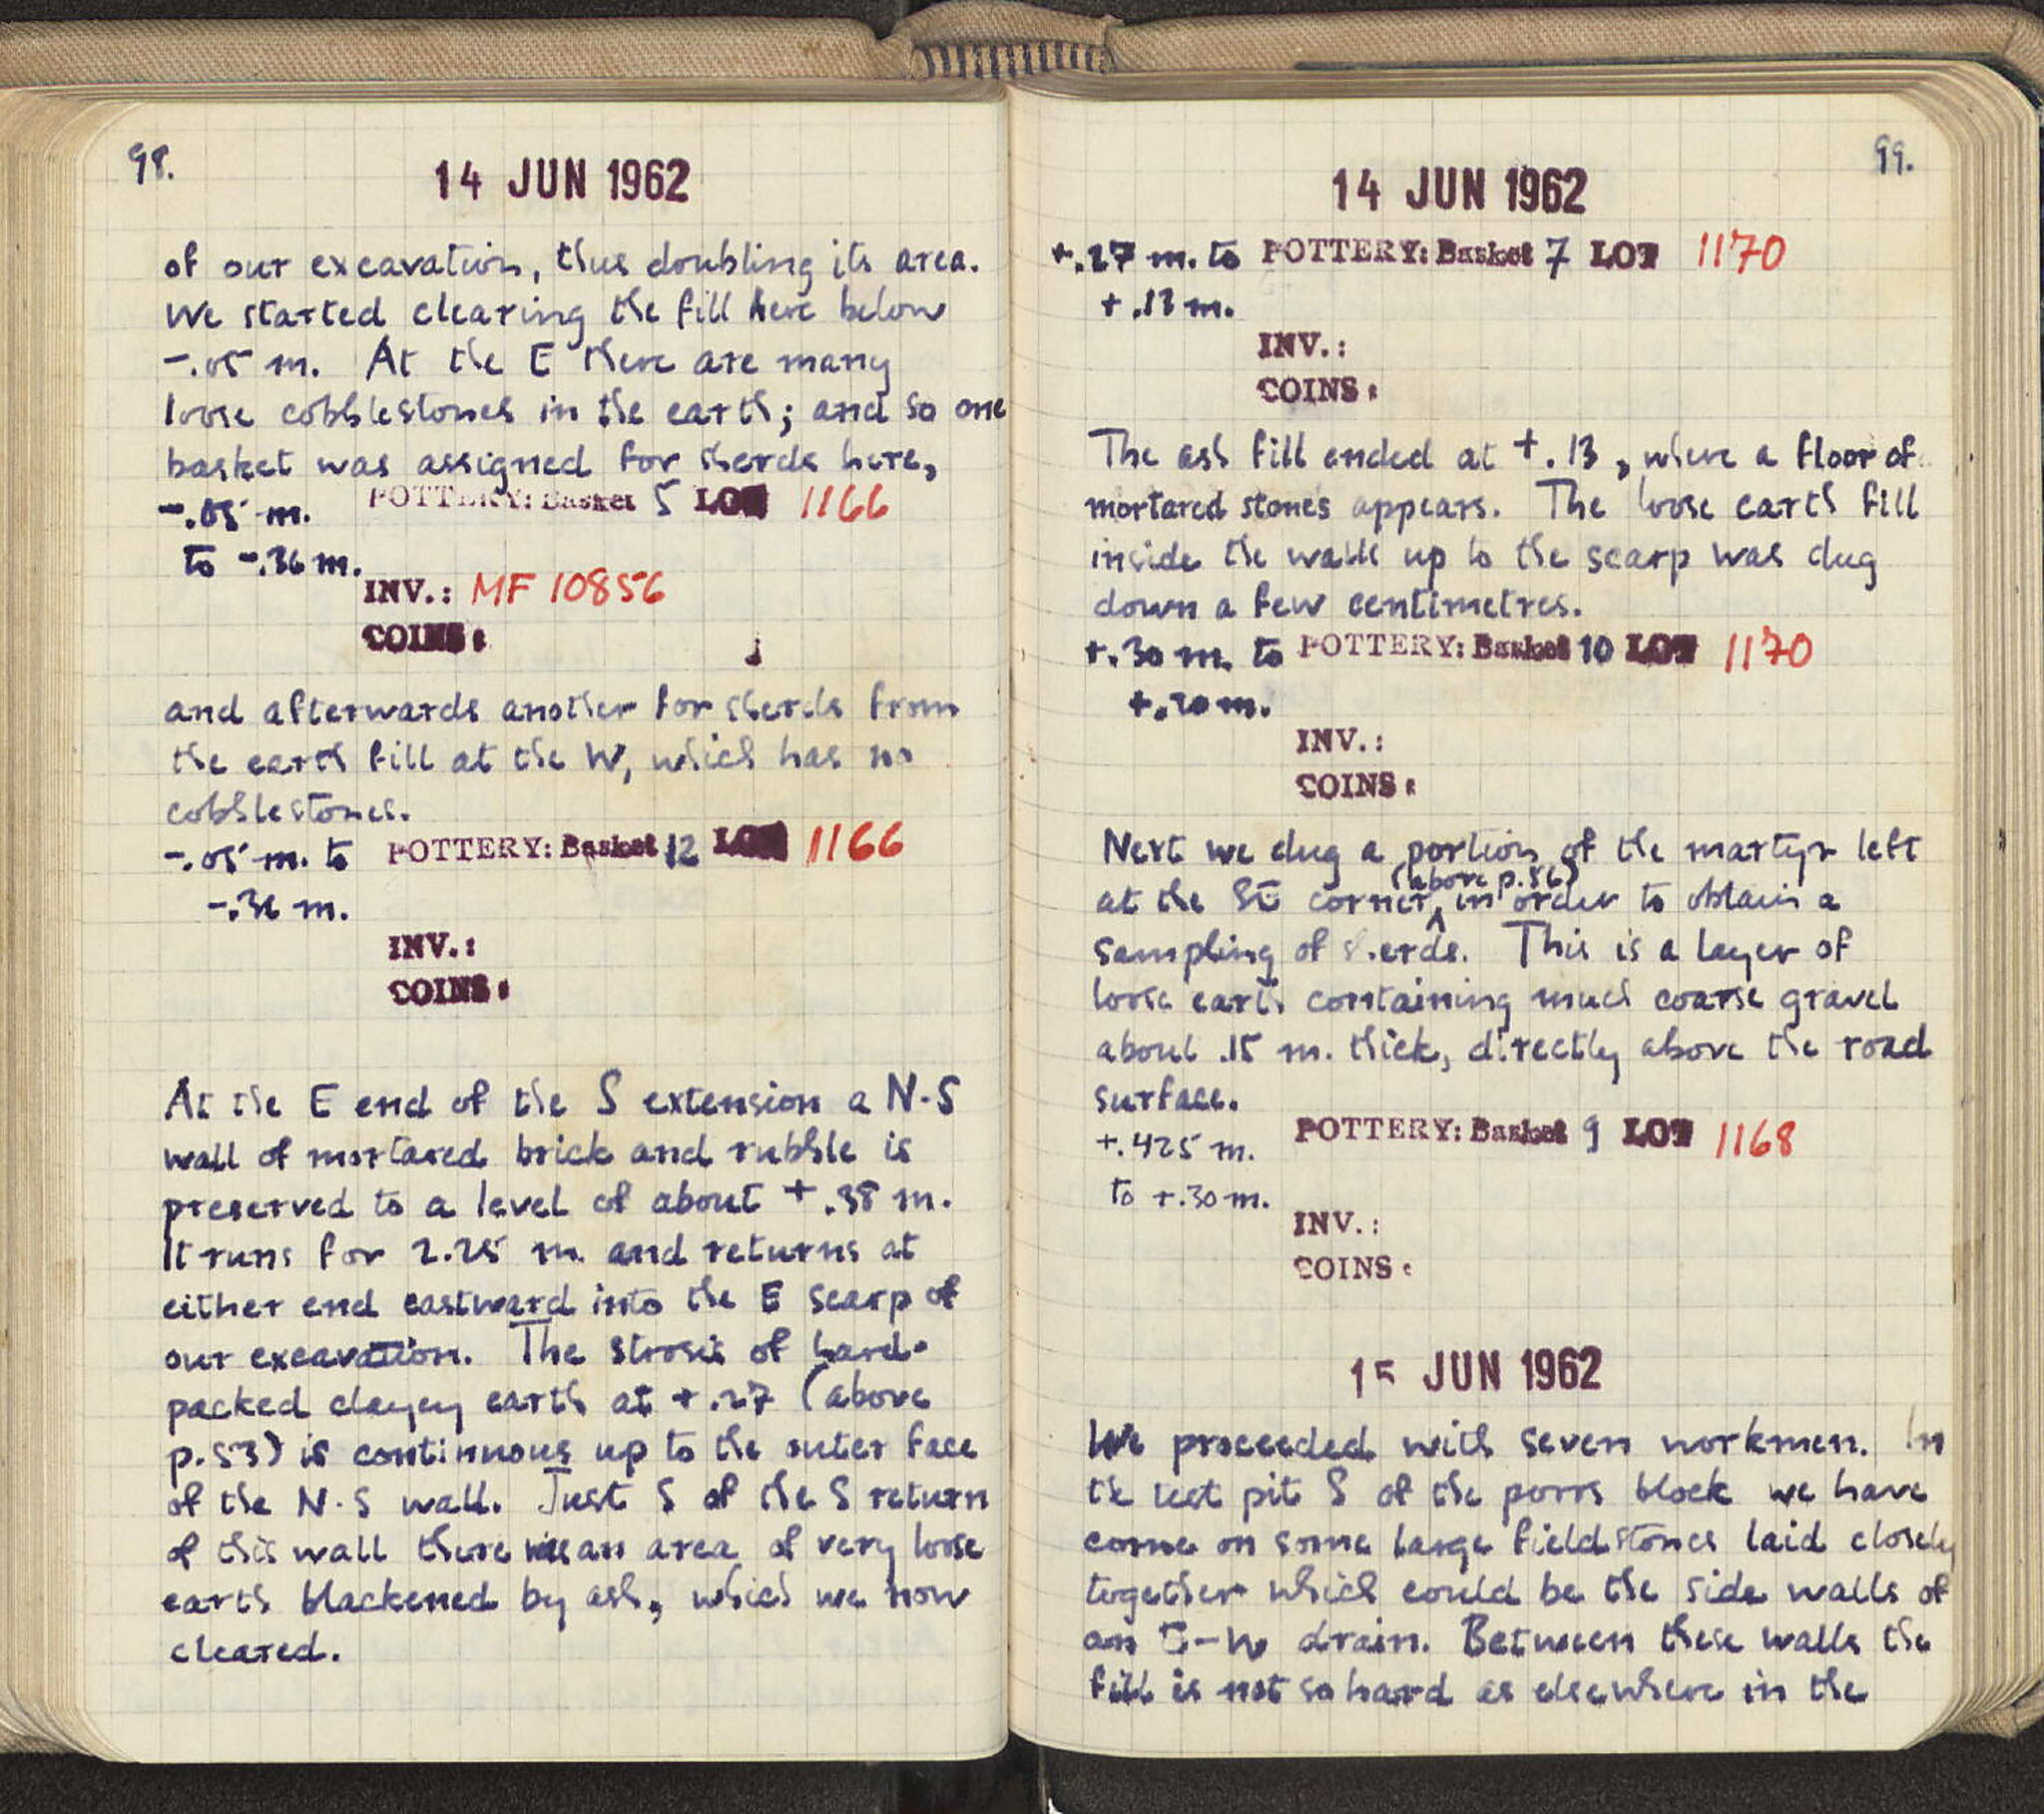 98.
14 JUN 1962
of our excavation, thus doubling its area.
We started clearing the fill here below
-.05 m. At the E there are many
loose cobblestones in the earth; and so one
basket was assigned for sherds here,
-.05 m. POTTERY: Basket 5 LOT 1166
to -.36 m.
INV.: MF 10856
COINS:
and afterwards another for sherds from
the earth fill at the W, which has no
cobblestones.
-.05 m. to POTTERY: Basket 12 LOT 1166
-.36 m.
INV.:
COINS:
At the E end of the S extension a N-S
wall of mortared brick and rubble is
preserved to a level of about +.38 m.
It runs for 2.25 m. and returns at
either end eastward into the E scarp of
our excavation. The strosis of hard-
packed clayey earth at +.27 (above
p.53) is continuous up to the outer face
of the N-S wall. Just S of the S return
of this wall there was an area of very loose
earth blackened by ash, which we now
cleared.
99.
14 JUN 1962
+.27 m. to POTTERY: Basket 7 LOT 1170
+.13 m.
INV.:
COINS:
The ash fill ended at +.13, where a floor of
mortared stones appears. The loose earth fill
inside the walls up to the scarp was dug
down a few centimetres.
+.30 m. to POTTERY: Basket 10 LOT 1170
+.20 m.
INV.:
COINS:
Next we dug a portion of the martyr left
(above p.86)
at the SE corner, in order to obtain a
sampling of sherds. This is a layer of
loose earth containing much coarse gravel
about .15 m. thick, directly above the road
surface.
+.425 m. POTTERY: Basket 9 LOT 1168
to +.30 m.
INV.:
COINS:
15 JUN 1962
We proceeded with seven workmen. In
the test pit S of the poros block we have
come on some large fieldstones laid closely
together which could be the side walls of
an E-W drain. Between these walls the
fill is not so hard as elsewhere in the